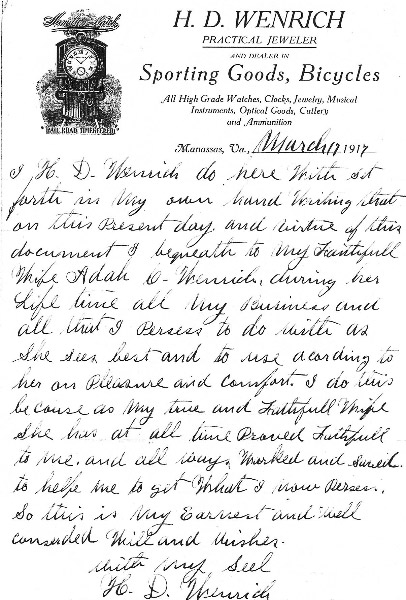 H. D. WENRICH
PRACTICAL JEWELER
AND DEALER IN
Sporting Goods, Bicycles
All High Grade Watches, Clocks, Jewelry, Musical
Instruments, Optical Goods, Cutlery
and Ammunition
RAIL ROAD TIMEKEEPER
Manassas, Va., March 17 1917
I H. D- Wenrich do here With set
forth in My own hand Writing that
on this Present day and virtue of this
document I bequeath to My Faithfull
Wife Adah C- Wenrich, during her
Life time all My Business and
all that I Persess to do with as
She sees best and to use acording to
her on Pleasure and comfort. I do this
because as My true and Faithfull Wife
She has at all time Proved Faithfull
to me. and all ways Worked and Saved.
to helpe me to get What I now Persess.
So this is My Earnest and Well
conserded Will and Wishes.
with my Seel
H. D. Wenrich